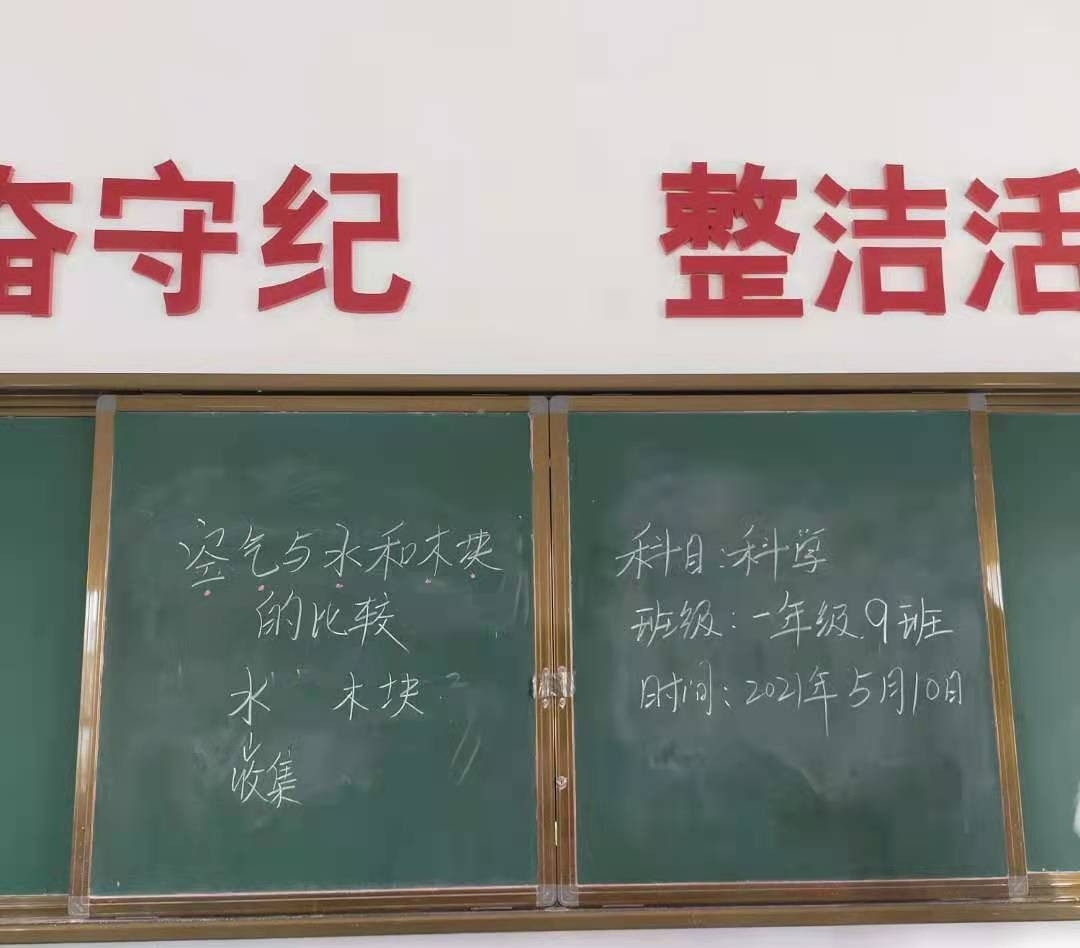 奋守纪 整洁活
空气与水和木块
的比较
水 木块
收集
科目:科学
班级:一年级.9班
时间:2021年5月10日